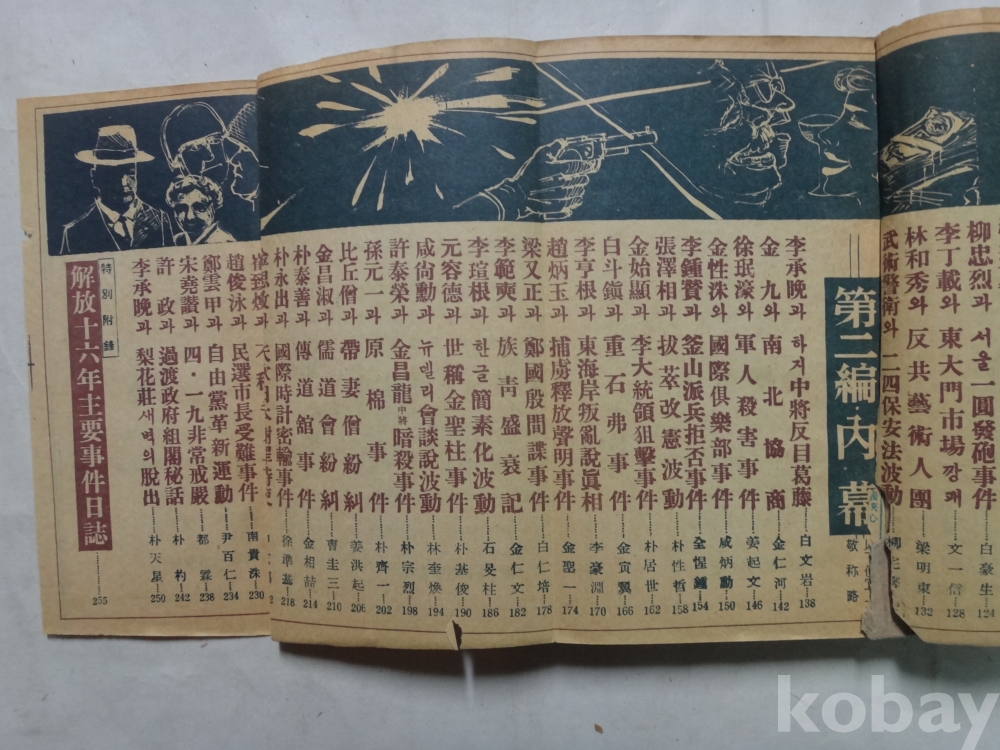 柳忠烈과 서울一圓發砲事件 白豪生 124
李丁載와 東大門市場깡패 文一信 128
林和秀와 反共藝術人團 梁明東 132
武術警衛와 二四保安法波動
第二編・內幕
敬称略
李承晩과 하지中將反目葛藤 白文岩 138
金九와 南北協商 金仁河 142
徐珉濠와 軍人殺害事件 姜起文 146
金性洙와 國際俱樂部事件 咸炳勳 150
李鍾贊과 釜山派兵拒否事件 全惺鍾 154
張澤相과 拔萃改憲波動 朴性哲 158
金始顯과 李大統領狙擊事件 朴居世 162
白斗鎭과 重石弗事件 金寅翼 166
李亨根과 東海岸叛亂說眞相 李豪淵 170
趙炳玉과 捕虜釋放聲明事件 金聖一 174
梁又正과 鄭國殷間諜事件 白仁培 178
李範奭과 族靑盛衰記 金仁文 182
李瑄根과 한글簡素化波動 石旻柱 186
元容德과 世稱金聖柱事件 朴基俊 190
咸尙勳과 뉴델리會談說波動 林奎煥 194
許泰榮과 金昌龍中將暗殺事件 朴宗烈 198
孫元一과 原棉事件 朴齊一 202
比丘僧과 帶妻僧紛糾 姜洪起 206
金昌淑과 儒道會紛糾 曺圭三 210
朴泰善과 傳道館事件 金相喆 214
朴永出과 國際時計密輸事件 徐準基 218
趙俊泳과 民選市長受難事件 南貴洙 230
鄭雲甲과 自由黨革新運動 尹百仁 234
宋堯讚과 四・一九非常戒嚴 都霖 238
許政과 過渡政府組閣秘話 朴杓 242
李承晩과 梨花莊새벽의脫出 朴天星 250
特別附錄
解放十六年主要事件日誌 255
kobay